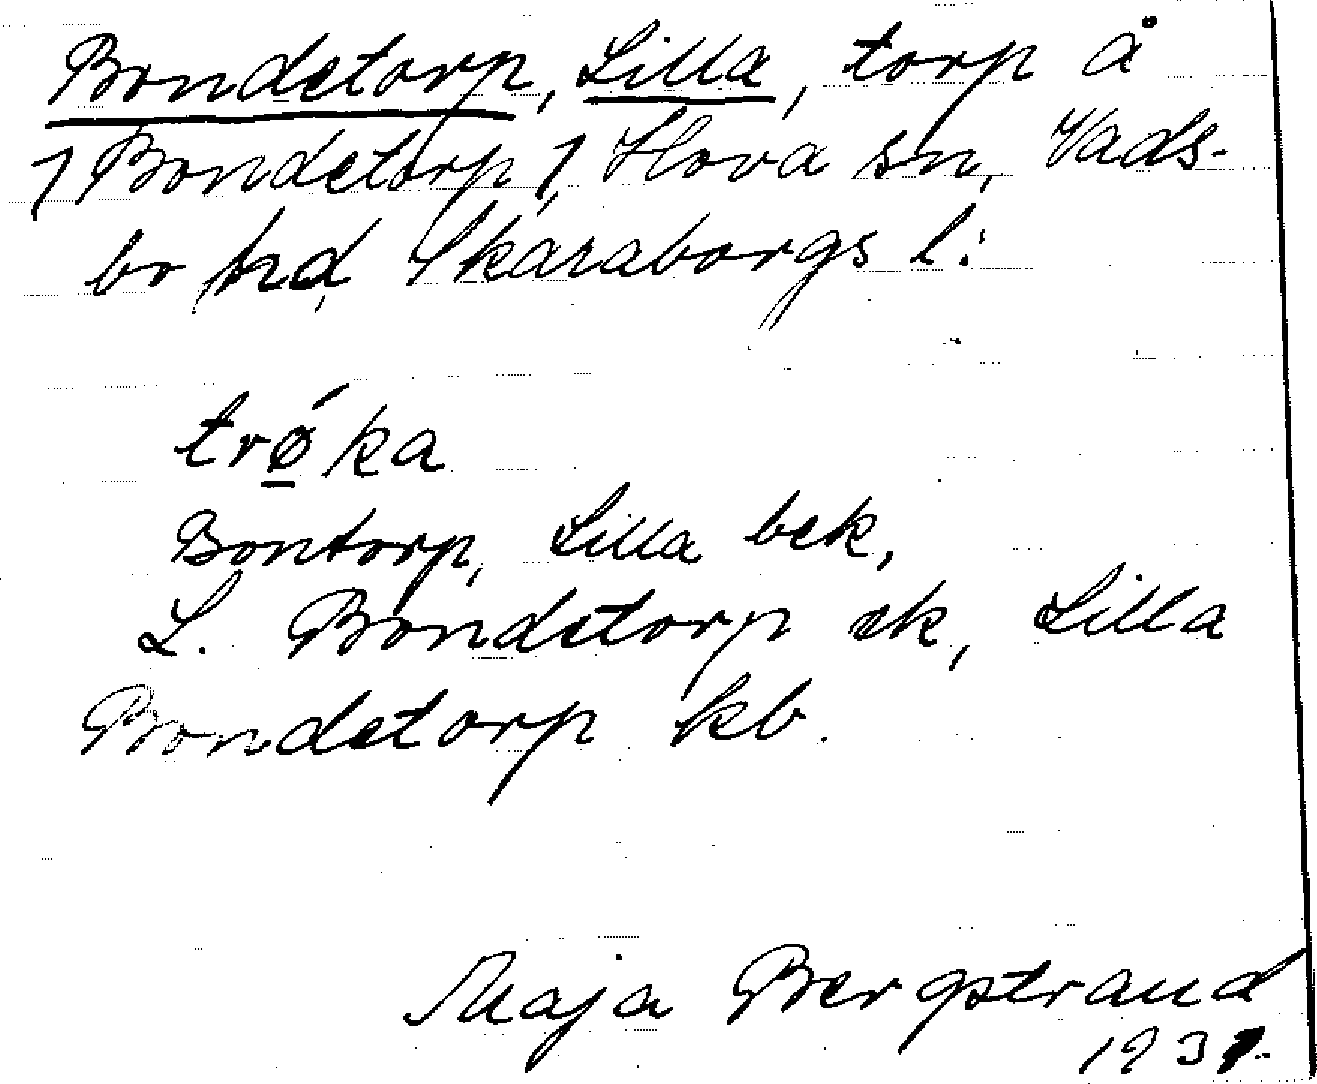 Bondetorp, Lilla, torp å
1 Bondetorp 1, Hova sn, Vads-
bo hd, Skaraborgs l:
trǿka
Bontorp, Lilla bek,
L. Bondetorp ek, Lilla
Bondetorp kb.
Maja Bergstrand